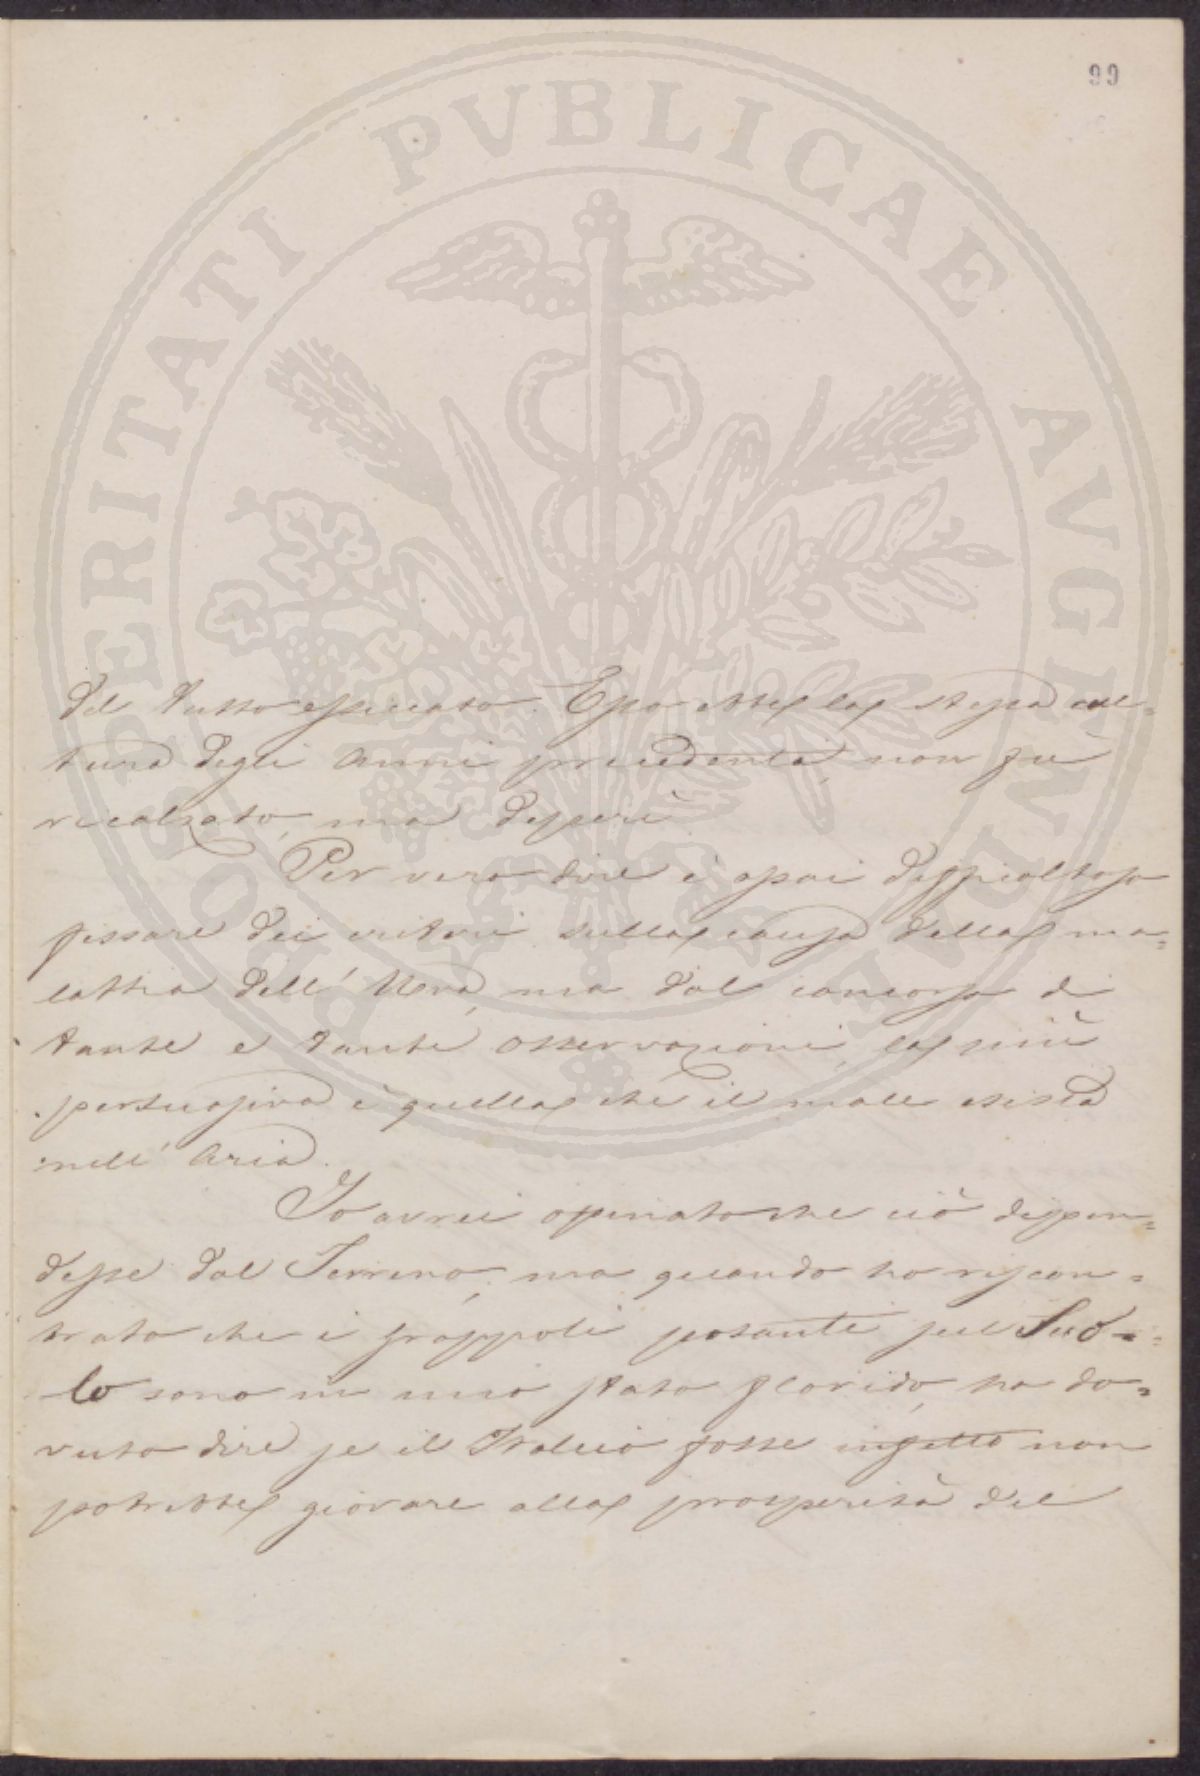 99
PROSPERITATI PVBLICAE AVGENDAE
del tutto essiccato. Esso ebbe la stessa cul=
tura degli Anni precedenti, non fu
rincalzato, ma deperì
Per vero dire è assai difficoltoso
fissare dei criteri sulla causa della ma=
lattia dell' Uva, ma dal concorso di
tante e tante osservazioni, la più
persuasiva è quella che il male esista
nell' Aria.
Io avrei opinato che ciò dipen=
desse dal Terreno, ma quando ho riscon=
trato che i grappoli posanti sul Suo=
lo sono in uno stato florido, ho do=
vuto dire se il Tralcio fosse infetto non
potrebbe giovare alla prosperità del